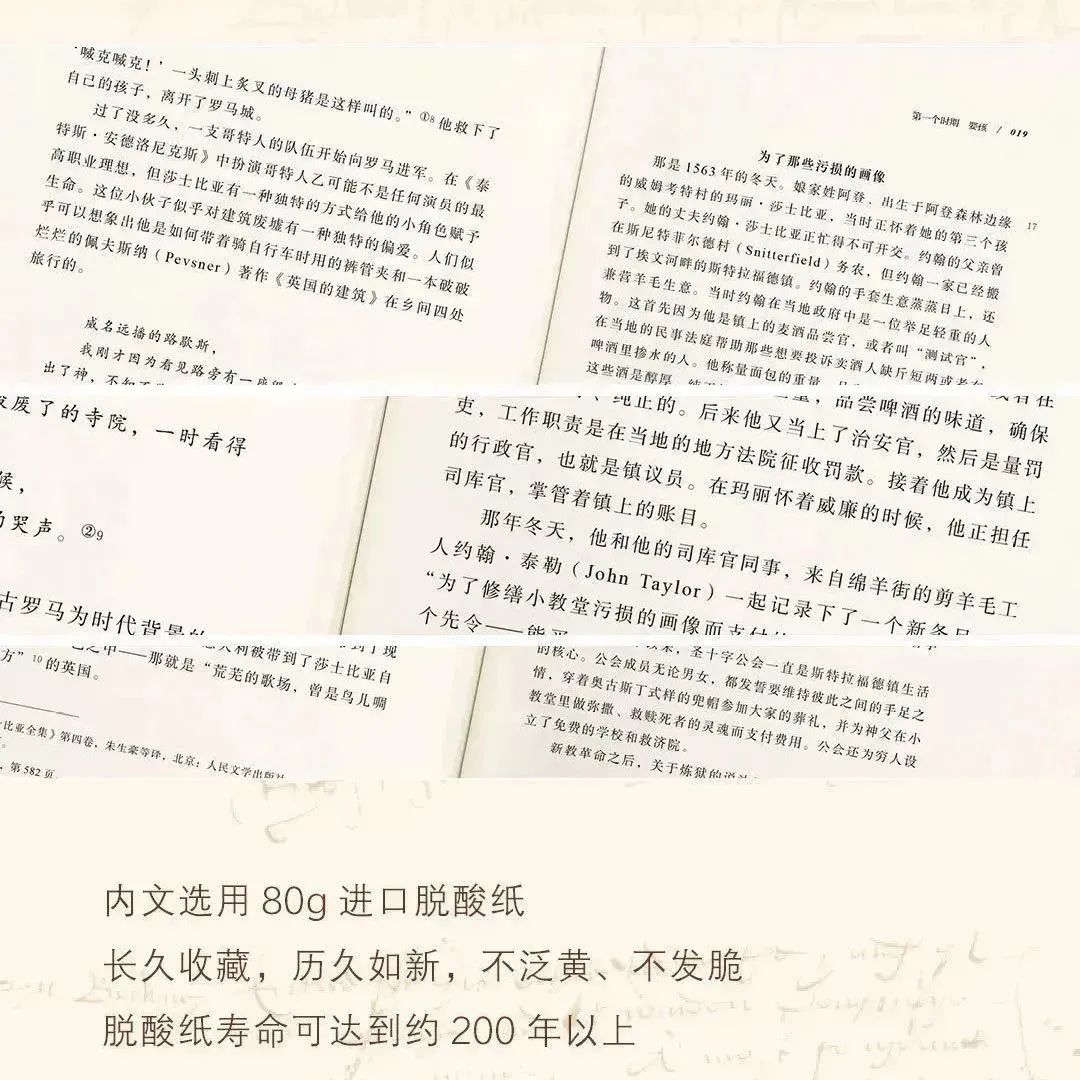 ‘喊克喊克！’一头刺上炙叉的母猪是这样叫的。”①8 他救下了
自己的孩子，离开了罗马城。
过了没多久，一支哥特人的队伍开始向罗马进军。在《泰
特斯·安德洛尼克斯》中扮演哥特人乙可能不是任何演员的最
高职业理想，但莎士比亚有一种独特的方式给他的小角色赋予
生命。这位小伙子似乎对建筑废墟有一种独特的偏爱。人们似
乎可以想象出他是如何带着骑自行车时用的裤管夹和一本破破
烂烂的佩夫斯纳（Pevsner）著作《英国的建筑》在乡间四处
旅行的。
威名远播的路歇斯，
我刚才因为看见路旁有一座毁
出了神，不知不
第一个时期 婴孩 / 019
为了那些污损的画像
那是 1563 年的冬天。娘家姓阿登、出生于阿登森林边缘
的威姆考特村的玛丽·莎士比亚，当时正怀着她的第三个孩
17
子。她的丈夫约翰·莎士比亚正忙得不可开交。约翰的父亲曾
在斯尼特菲尔德村（Snitterfield）务农，但约翰一家已经搬
到了埃文河畔的斯特拉福德镇。约翰的手套生意蒸蒸日上，还
兼营羊毛生意。当时约翰在当地政府中是一位举足轻重的人
物。这首先因为他是镇上的麦酒品尝官，或者叫“测试官”，
在当地的民事法庭帮助那些想要投诉卖酒人缺斤短两或者在
啤酒里掺水的人。他称量面包的重量，品
这些酒是醇厚、纯正
废了的寺院，一时看得
候，
的哭声。②9
古罗马为时代背景的
品尝啤酒的味道，确保
、纯正的。后来他又当上了治安官，然后是量罚
吏，工作职责是在当地的地方法院征收罚款。接着他成为镇上
的行政官，也就是镇议员。在玛丽怀着威廉的时候，他正担任
司库官，掌管着镇上的账目。
那年冬天，他和他的司库官同事，来自绵羊街的剪羊毛工
人约翰·泰勒（John Taylor）一起记录下了一个新条目
“为了修缮小教堂污损的画像而支付
个先令——能
大利被带到了莎士比亚自
之中——那就是“荒芜的歌场，曾是鸟儿啁
方”10 的英国。
士比亚全集》第四卷，朱生豪等译，北京：人民文学出版社
，第 582 页。
以来，圣十字公会一直是斯特拉福德镇生活
的核心。公会成员无论男女，都发誓要维持彼此之间的手足之
情，穿着奥古斯丁式样的兜帽参加大家的葬礼，并为神父在小
教堂里做弥撒、救赎死者的灵魂而支付费用。公会还为穷人设
立了免费的学校和救济院。
新教革命之后，关于炼狱的说法
内文选用 80g 进口脱酸纸
长久收藏，历久如新，不泛黄、不发脆
脱酸纸寿命可达到约 200 年以上